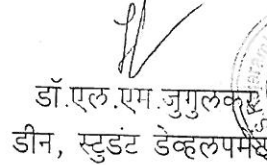 डॉ.एल.एम.जुगुलकर
डीन, स्टुडंट डेव्हलपमेंट